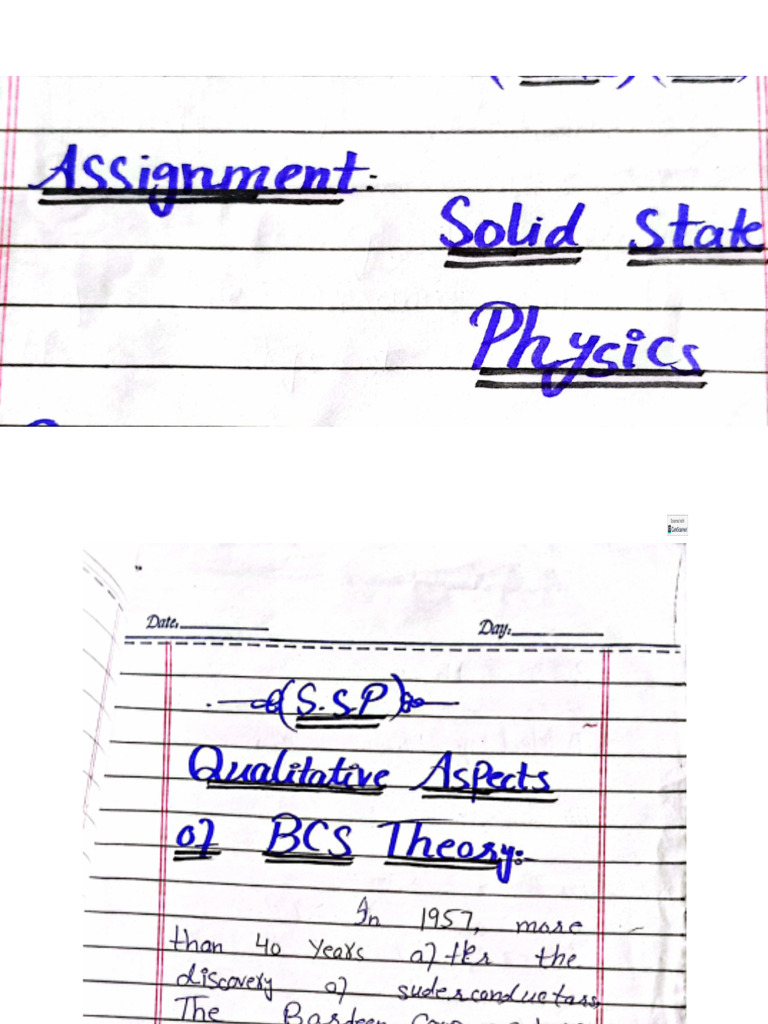 Assignment:
Solid State
Physics
Date.
Day:
(S.S.P)
Qualitative Aspects
of BCS Theory:
In 1957, more
than 40 years after the
discovery of suderconductors
The Bardeen